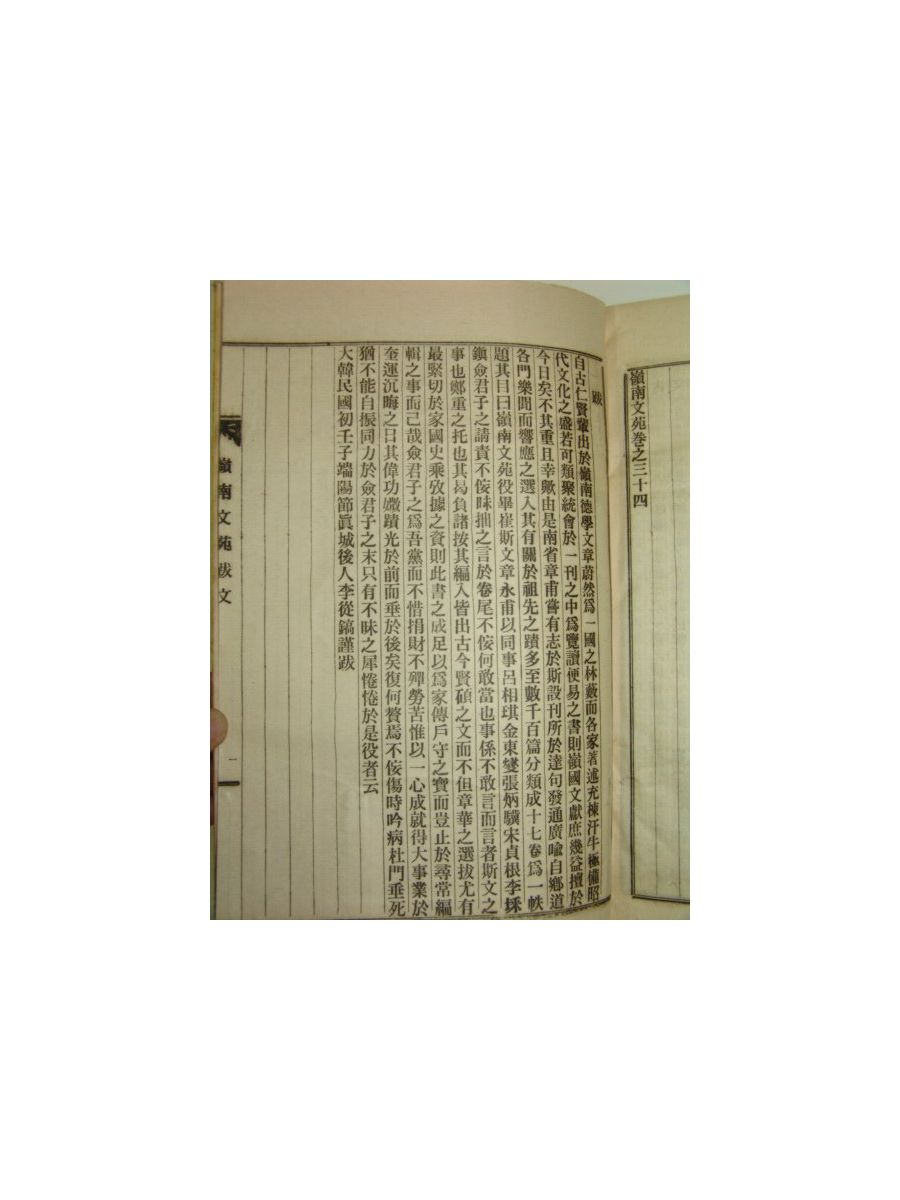 嶺南文苑卷之三十四
跋
自古仁賢輩出於嶺南德學文章蔚然爲一國之林藪而各家著述充棟汗牛極備昭
代文化之盛若可類聚統會於一刊之中爲覽讀便易之書則嶺國文獻庶幾益擅於
今日矣不其重且幸歟由是南省章甫嘗有志於斯設刊所於達句發通廣喩自鄕道
各門樂聞而響應之選入其有關於祖先之蹟多至數千百篇分類成十七卷爲一帙
題其目曰嶺南文苑役畢崔斯文章永甫以同事呂相琪金東燮張炳驥宋貞根李採
鎭僉君子之請責不侫昧拙之言於卷尾不侫何敢當也事係不敢言而言者斯文之
事也鄭重之托也其曷負諸按其編入皆出古今賢碩之文而不但章華之選拔尤有
最緊切於家國史乘攷據之資則此書之成足以爲家傳戶守之寶而豈止於尋常編
輯之事而已哉僉君子之爲吾黨而不惜捐財不殫勞苦惟以一心成就得大事業於
奎運沉晦之日其偉功媺蹟光於前而垂於後矣復何贅焉不侫傷時吟病杜門垂死
猶不能自振同力於僉君子之末只有不昧之犀惓惓於是役者云
大韓民國初壬子端陽節眞城後人李從鎬謹跋
嶺南文苑跋文
一